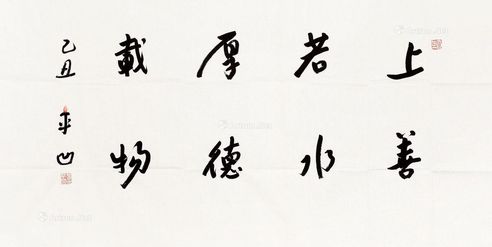 上善
若水
厚德
載物
乙丑 平凹